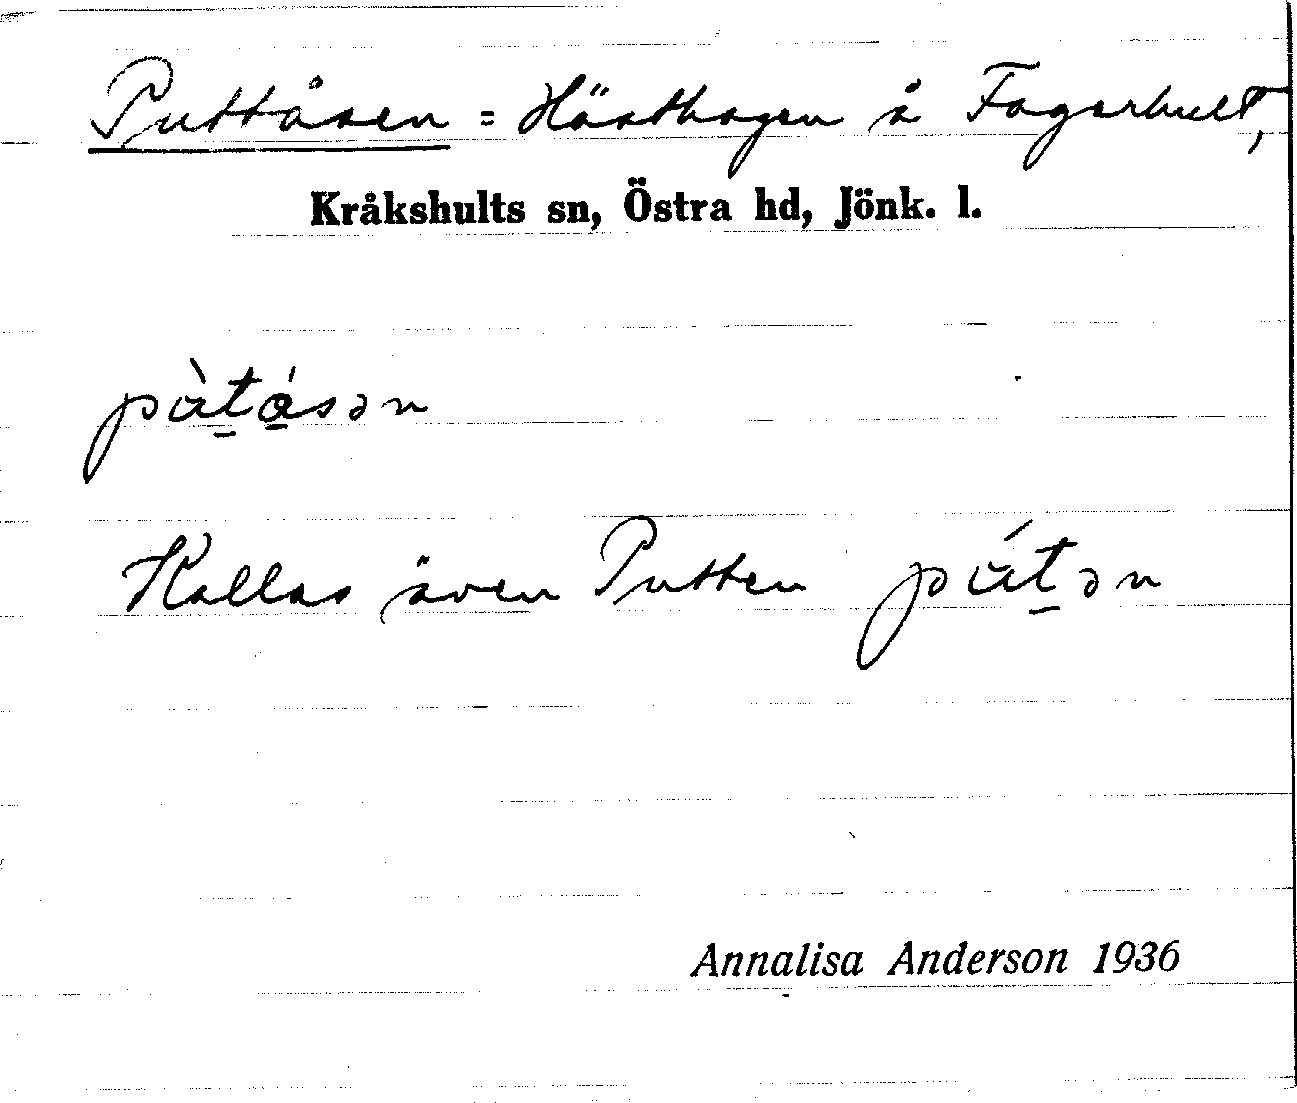 Puttåsen = Hästhagen å Fagerhult,
Kråkshults sn, Östra hd, Jönk. l.
pàt̲á̲sən
Kallas även Putten pát̲ən
Annalisa Anderson 1936